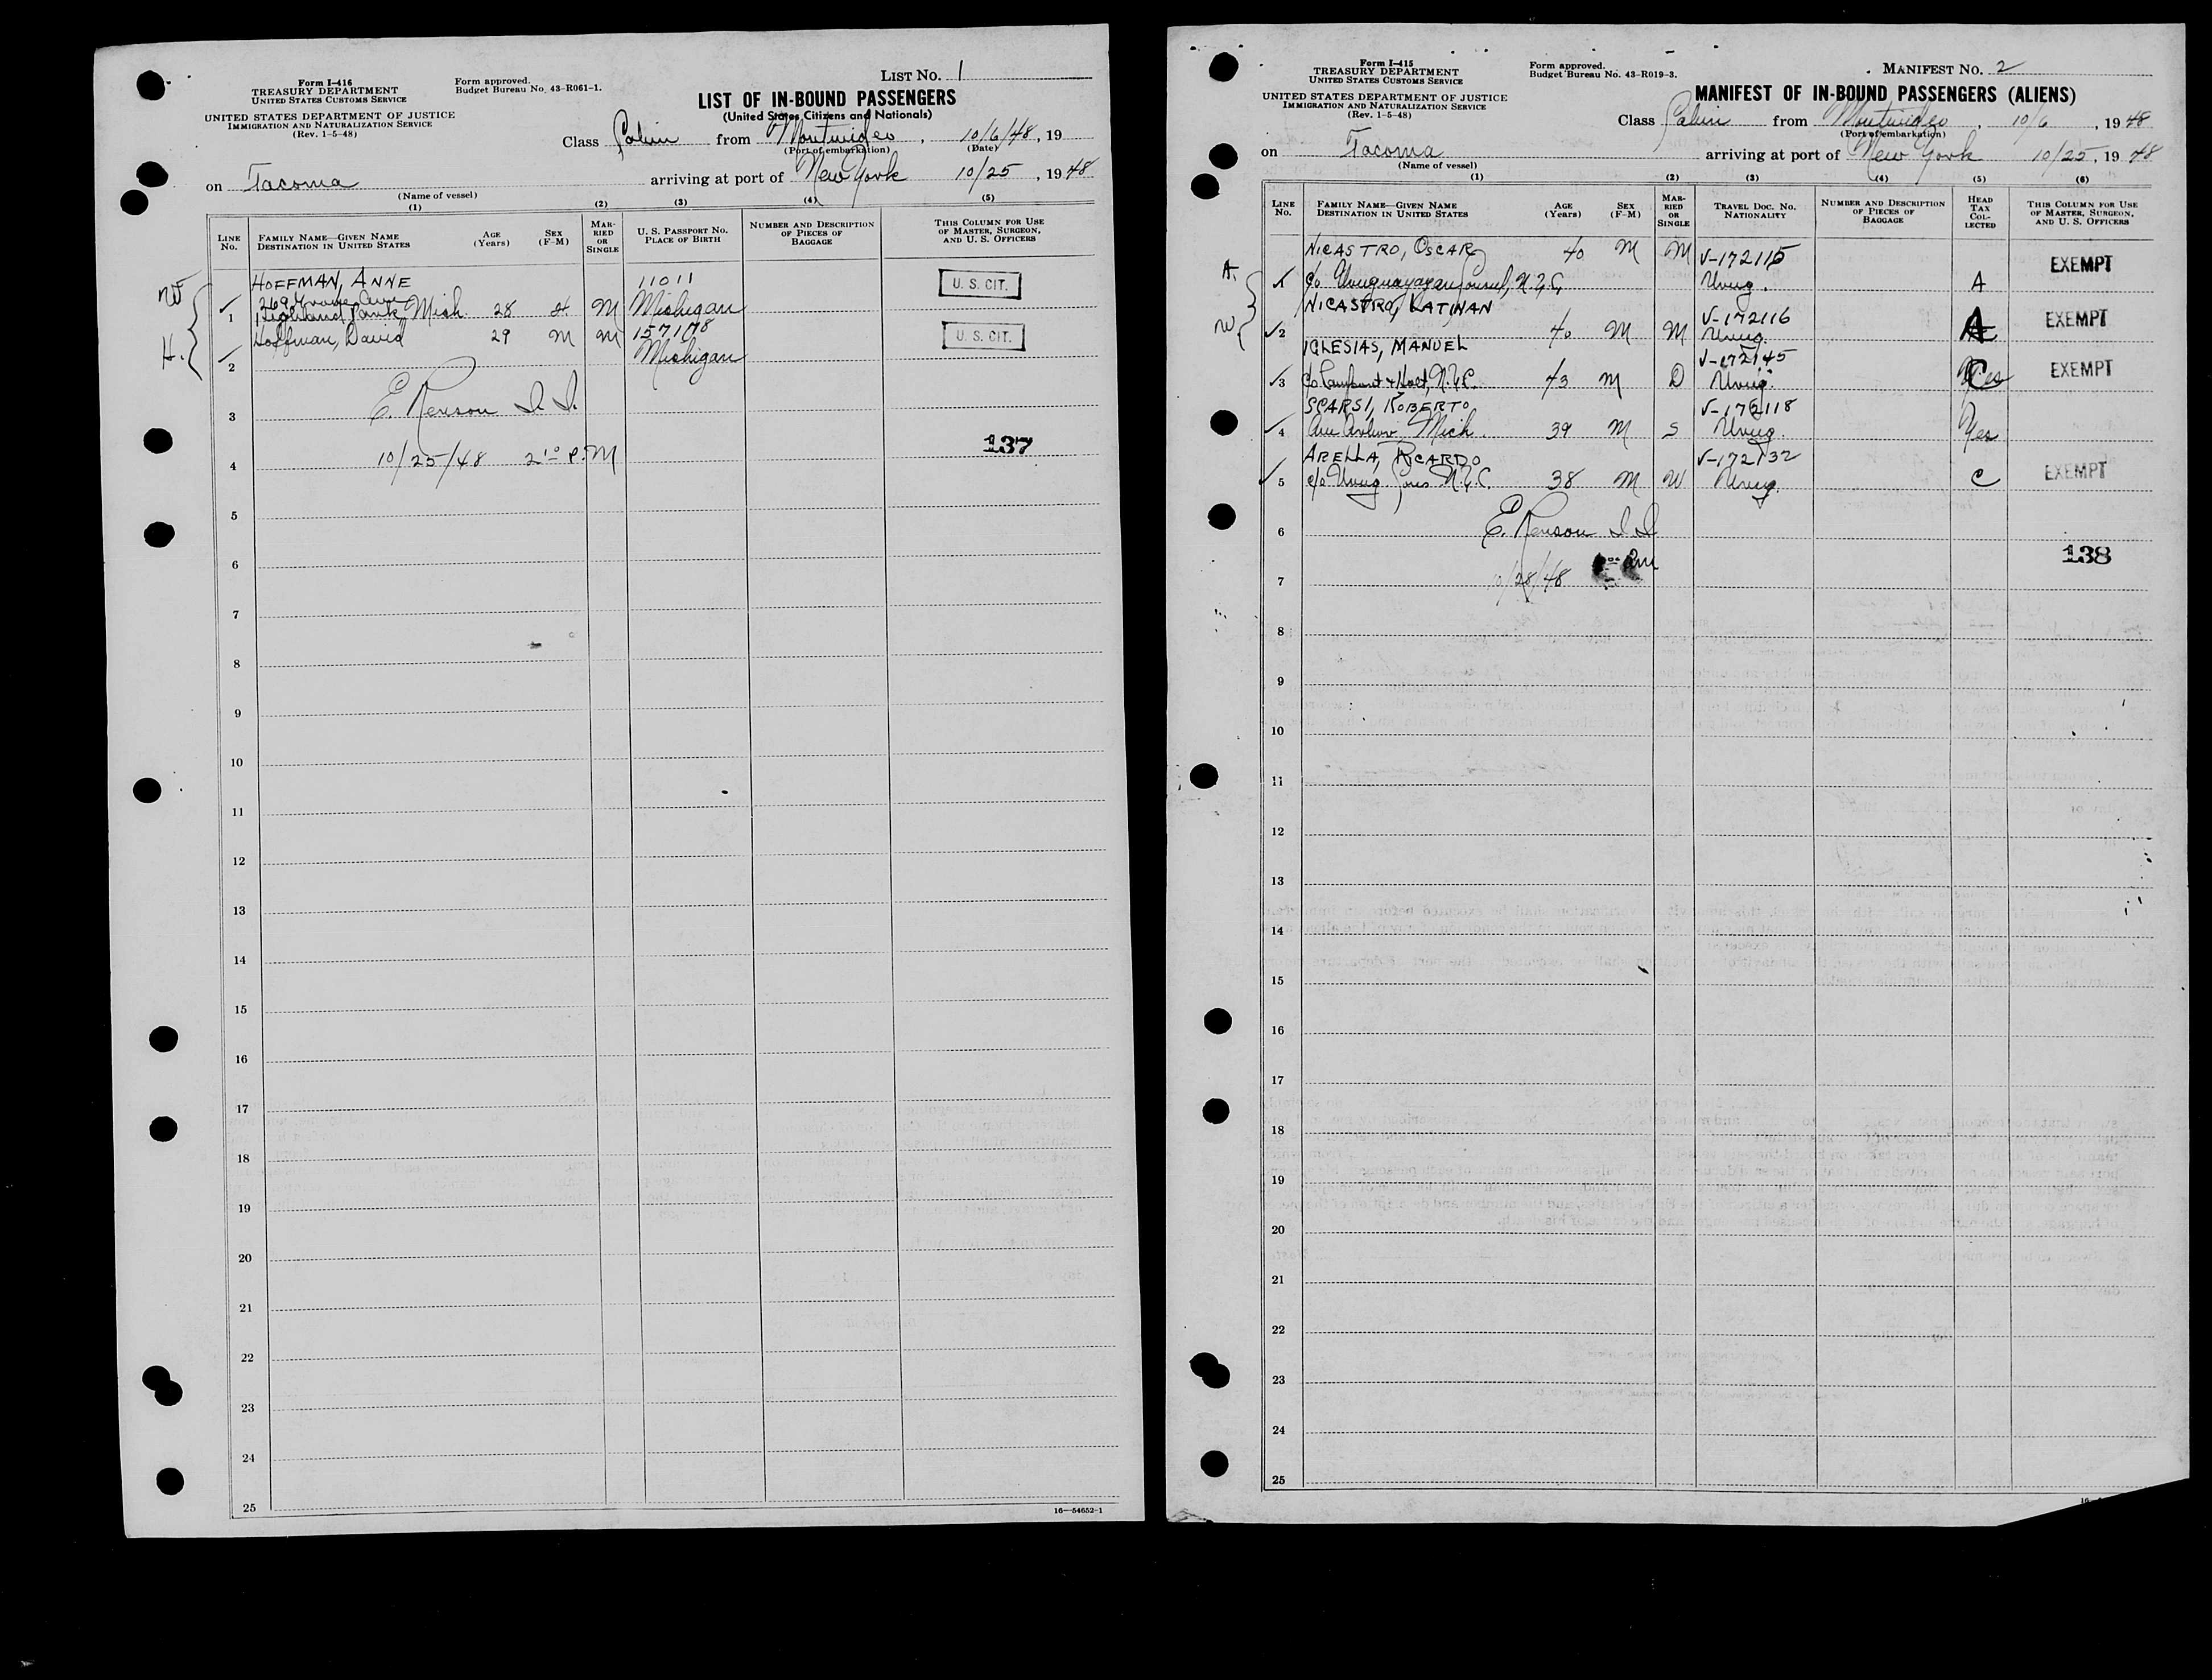 LIST No. 1
Form I-416
TREASURY DEPARTMENT
UNITED STATES CUSTOMS SERVICE
Form approved.
Budget Bureau No. 43-R061-1.
UNITED STATES DEPARTMENT OF JUSTICE
IMMIGRATION AND NATURALIZATION SERVICE
(Rev. 1-5-48)
LIST OF IN-BOUND PASSENGERS
(United States Citizens and Nationals)
Class Cabin from Montevideo, 10/6/48, 19
(Port of embarkation) (Date)
on Tacoma arriving at port of New York 10/25, 19 48
(Name of vessel)
(1) (2) (3) (4) (5)
LINE No. FAMILY NAME—GIVEN NAME DESTINATION IN UNITED STATES AGE (Years) SEX (F-M) MARRIED OR SINGLE U. S. PASSPORT No. PLACE OF BIRTH NUMBER AND DESCRIPTION OF PIECES OF BAGGAGE THIS COLUMN FOR USE OF MASTER, SURGEON, AND U. S. OFFICERS
W
HOFFMAN, ANNE 11011 U. S. CIT.
269 Grove Ave
1 Highland Park Mich. 28 M Michigan
H.
Hoffman, David 29 M M 157178 U. S. CIT.
2 Michigan
E. Renson I. I.
3
137
4 10/25/48 2:10 P.M
5
6
7
8
9
10
11
12
13
14
15
16
17
18
19
20
21
22
23
24
25
16—54652-1
MANIFEST No. 2
Form I-415
TREASURY DEPARTMENT
UNITED STATES CUSTOMS SERVICE
Form approved.
Budget Bureau No. 43-R019-3.
UNITED STATES DEPARTMENT OF JUSTICE
IMMIGRATION AND NATURALIZATION SERVICE
(Rev. 1-5-48)
MANIFEST OF IN-BOUND PASSENGERS (ALIENS)
Class Cabin from Montevideo, 10/6, 19 48
(Port of embarkation)
on Tacoma arriving at port of New York 10/25, 19 48
(Name of vessel)
(1) (2) (3) (4) (5) (6)
LINE No. FAMILY NAME—GIVEN NAME DESTINATION IN UNITED STATES AGE (Years) SEX (F-M) MARRIED OR SINGLE TRAVEL DOC. No. NATIONALITY NUMBER AND DESCRIPTION OF PIECES OF BAGGAGE HEAD TAX COLLECTED THIS COLUMN FOR USE OF MASTER, SURGEON, AND U. S. OFFICERS
NICASTRO, OSCAR 40 M M V-172115 EXEMPT
1 c/o Uruguayan Consul, N.Y.C. Urug. A
W
NICASTRO, LATINAN V-172116 EXEMPT
2 40 M M Urug. A
IGLESIAS, MANUEL V-172145 EXEMPT
3 c/o Lamport & Holt, N.Y.C. 43 M D Urug. C
SCARSI, ROBERTO V-172118
4 Ann Arbor, Mich. 39 M S Urug. Yes
ARELLA, RICARDO V-172132 EXEMPT
5 c/o Urug Cons N.Y.C. 38 M W Urug. C
6 E. Renson I. I.
138
7 /28/48 PM
8
9
10
11
12
13
14
15
16
17
18
19
20
21
22
23
24
25